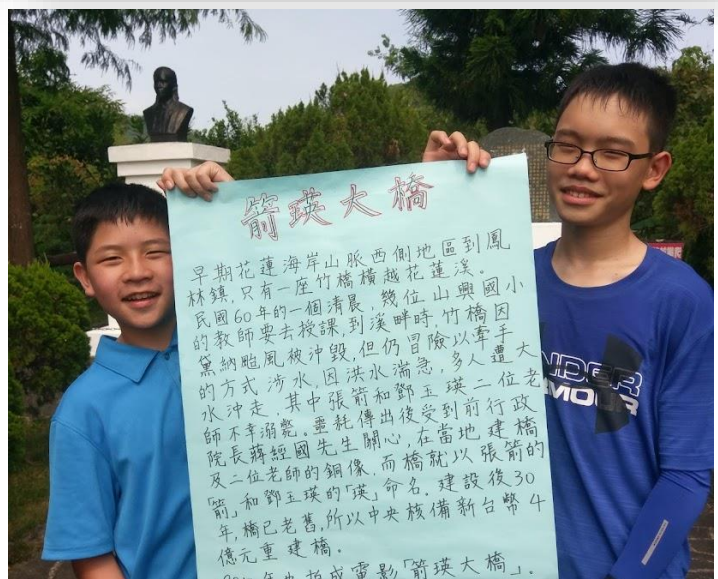 箭瑛大橋
早期花蓮海岸山脈西側地區到鳳
林鎮,只有一座竹橋橫越花蓮溪。
民國60年的一個清晨,幾位山興國小
的教師要去授課,到溪畔時,竹橋因
黛納颱風被沖毀,但仍冒險以牽手
的方式涉水,因洪水湍急,多人遭大
水沖走,其中張箭和鄧玉瑛二位老
師不幸溺斃。噩耗傳出後受到前行政
院長蔣經國先生關心,在當地建橋
及二位老師的銅像,而橋就以張箭的
「箭」和鄧玉瑛的「瑛」命名。建設後30
年,橋已老舊,所以中央核備新台幣4
億元重建橋。
拍成電影「箭瑛大橋」。
UNDER
ARMOUR